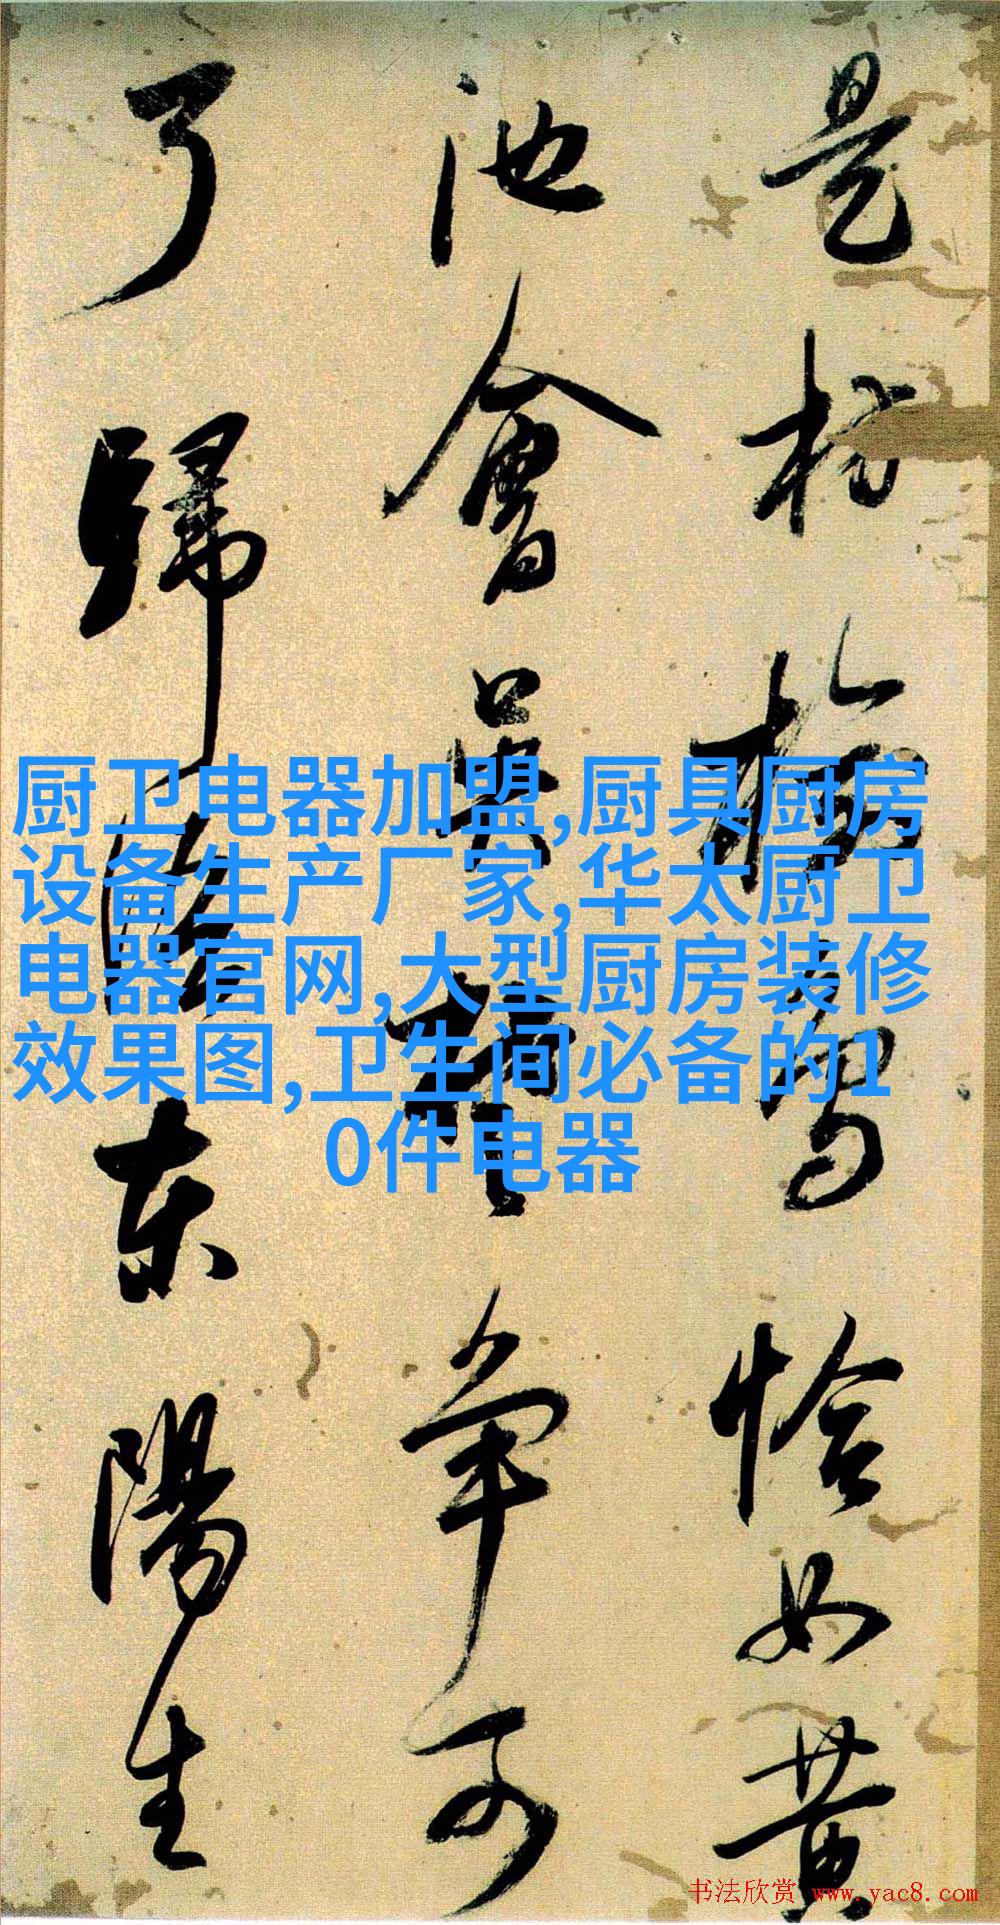 厨卫电器加盟,厨具厨房
设备生产厂家,华太厨卫
电器官网,大型厨房装修
效果图,卫生间必备的1
0件电器
是 恰如黄
池會 争可
了歸 東陽生
书法欣赏 www.yac8.com